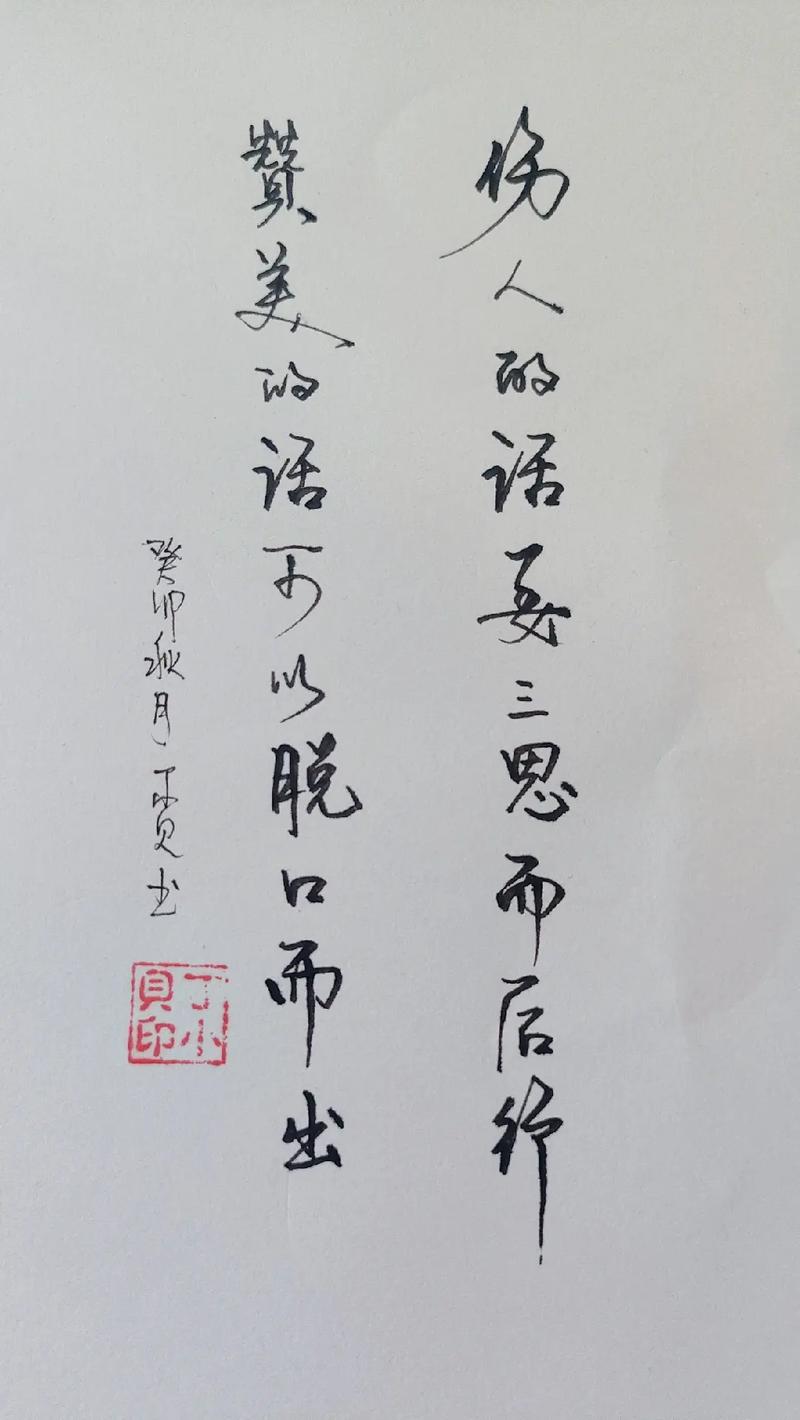 伤人的话要三思而后行
赞美的话可以脱口而出
癸卯秋月 丁小贝书
丁小貝印